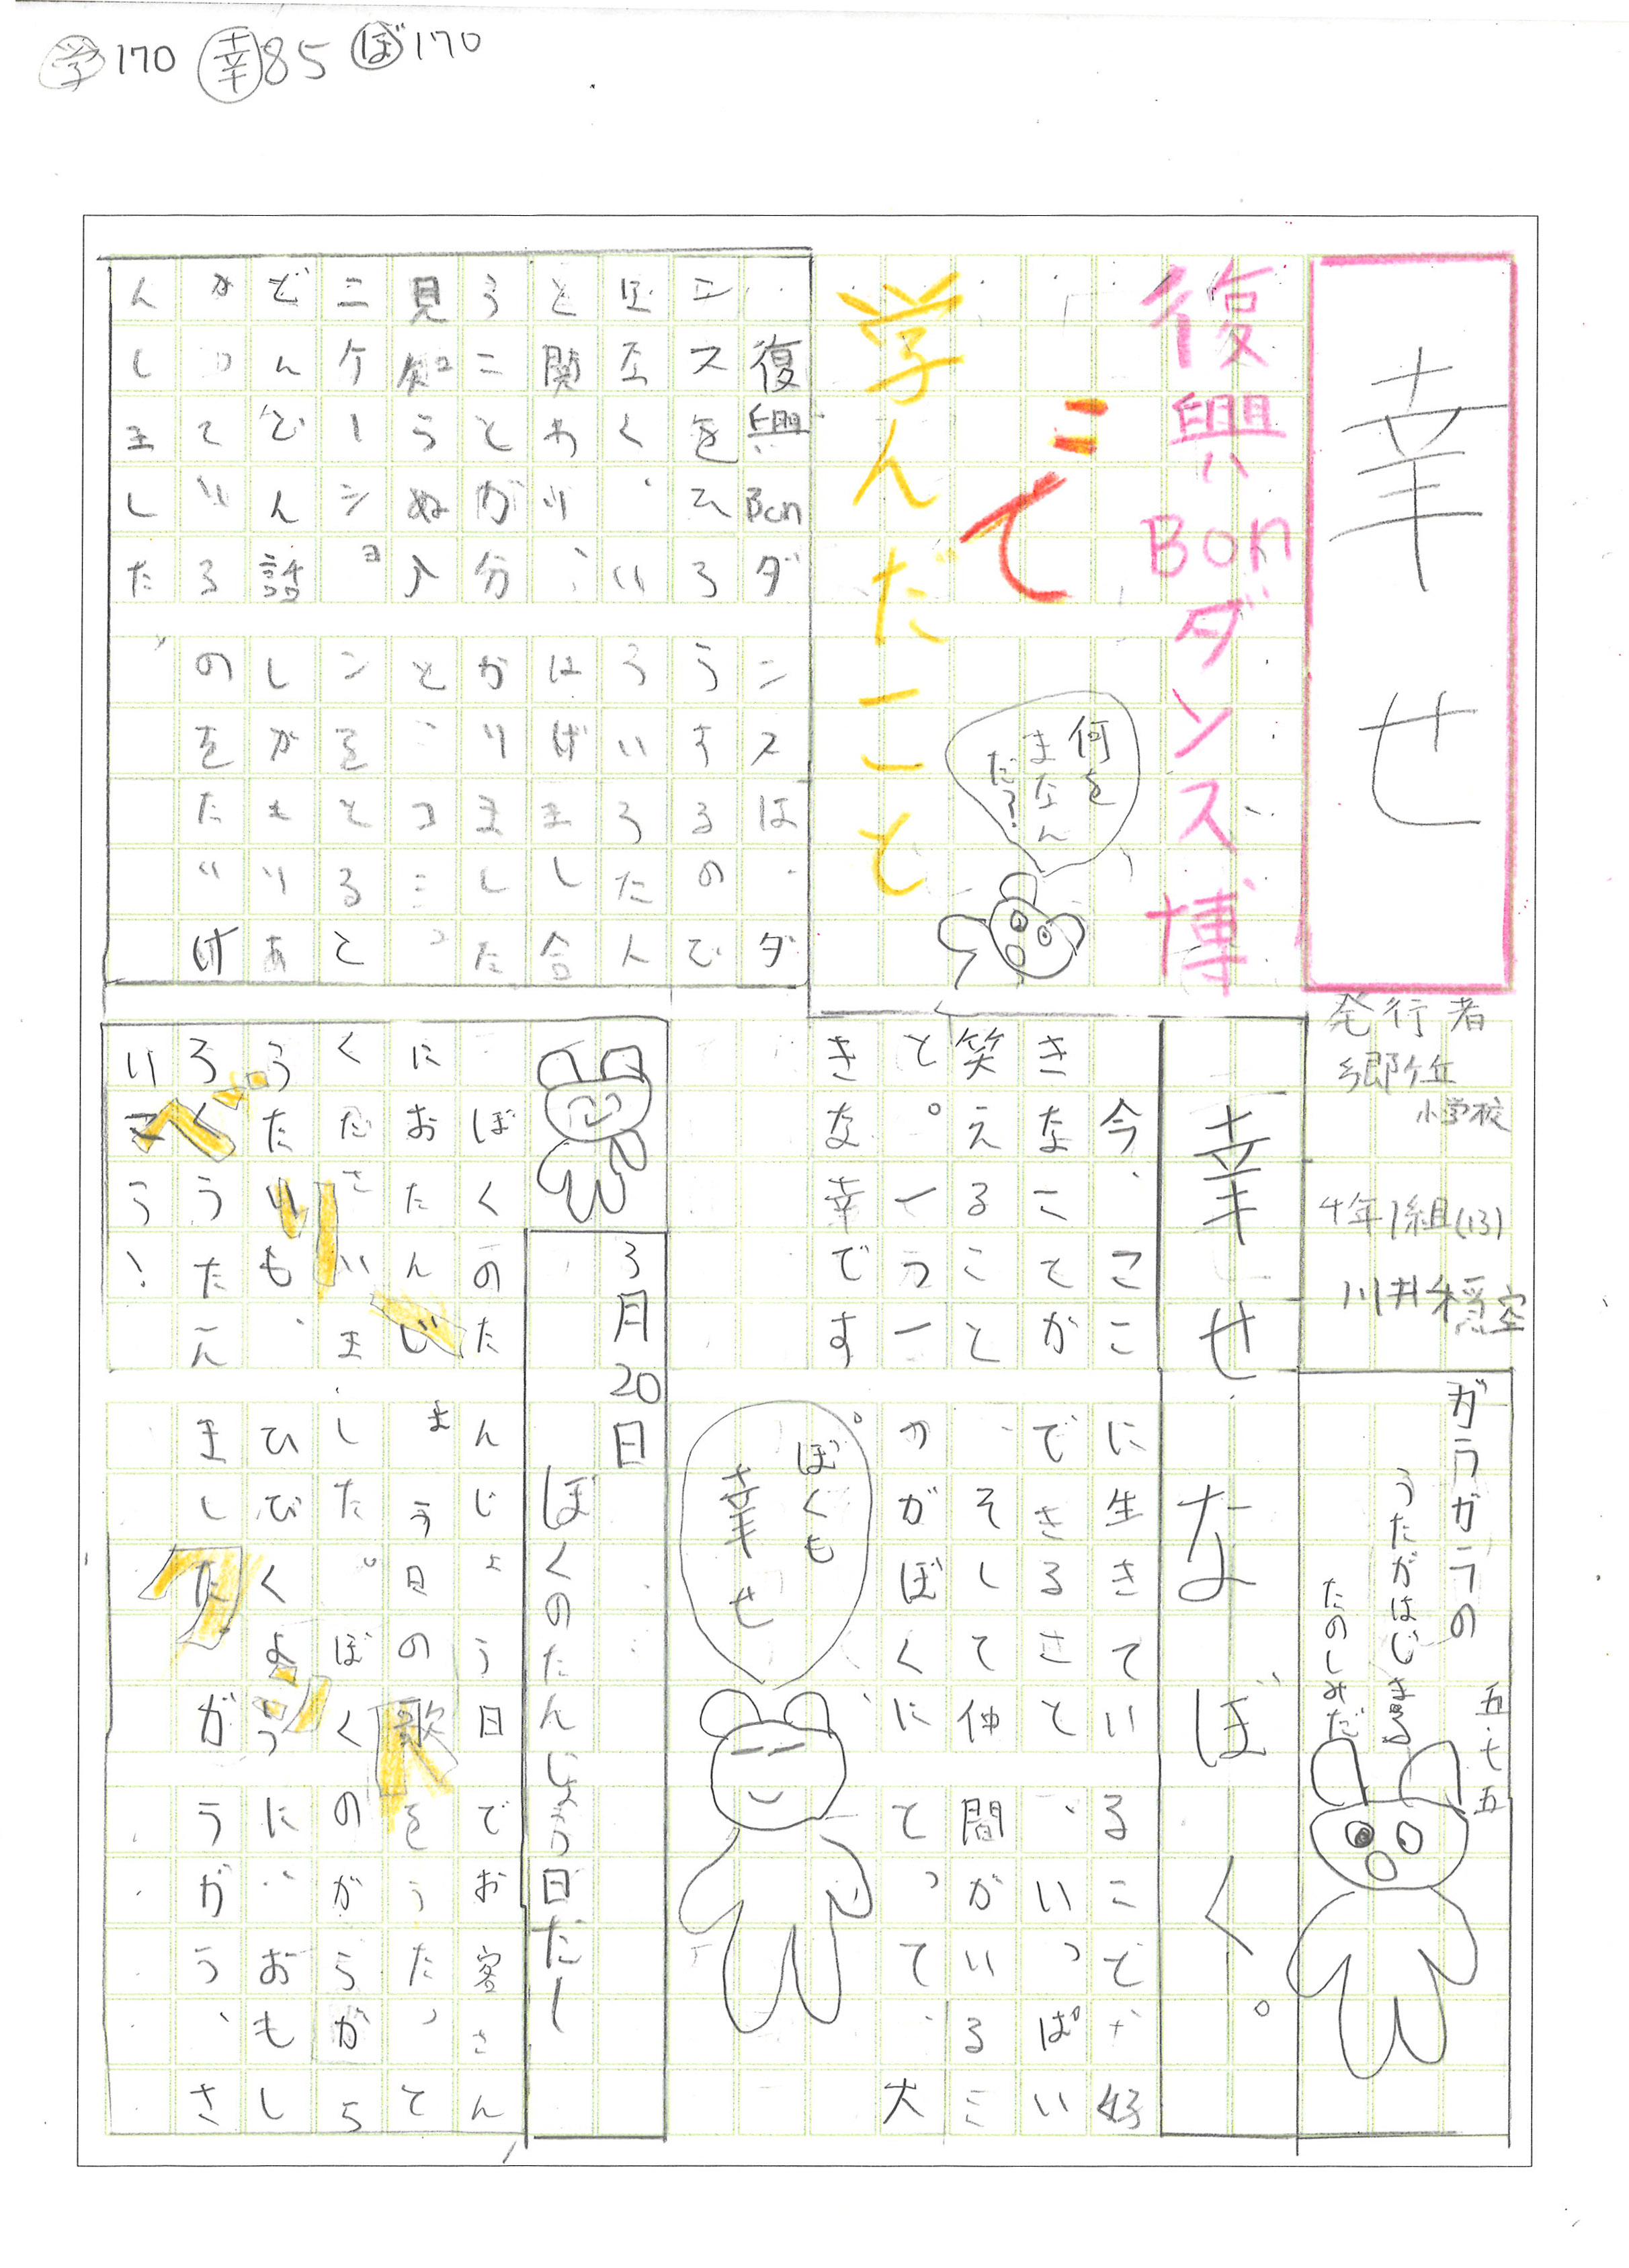 学170 幸85 ぼ170
幸せ
発行者
郷ケ丘
小学校
4年1組(13)
川井穏空
五・七・五
ガラガラの
うたがはじまる
たのしみだ
復興Bonダンス博
にて
学んだこと
何を
まなん
だ?
復興Bonダンスは、ダ
ンスをひろうするので
はなく、いろいろな人
と関わり、はげまし合
うことが分かりました
見知らぬ人と、コミュ
ニケーションをとると
ぜんぜん話しがもりあ
がっているのをたいけ
んしました。
幸せなぼく。
今、ここに生きていること、好
きなことができること、いっぱい
笑えること、そして仲間がいるこ
と。一つ一つがぼくにとって、大
きな幸です。
ぼくも
幸せ
3月20日
ぼくのたんじょう日だし
ぼくのたんじょう日でお客さん
くださいました。ぼくのがらがら
ひびくようにおもし
いこう!